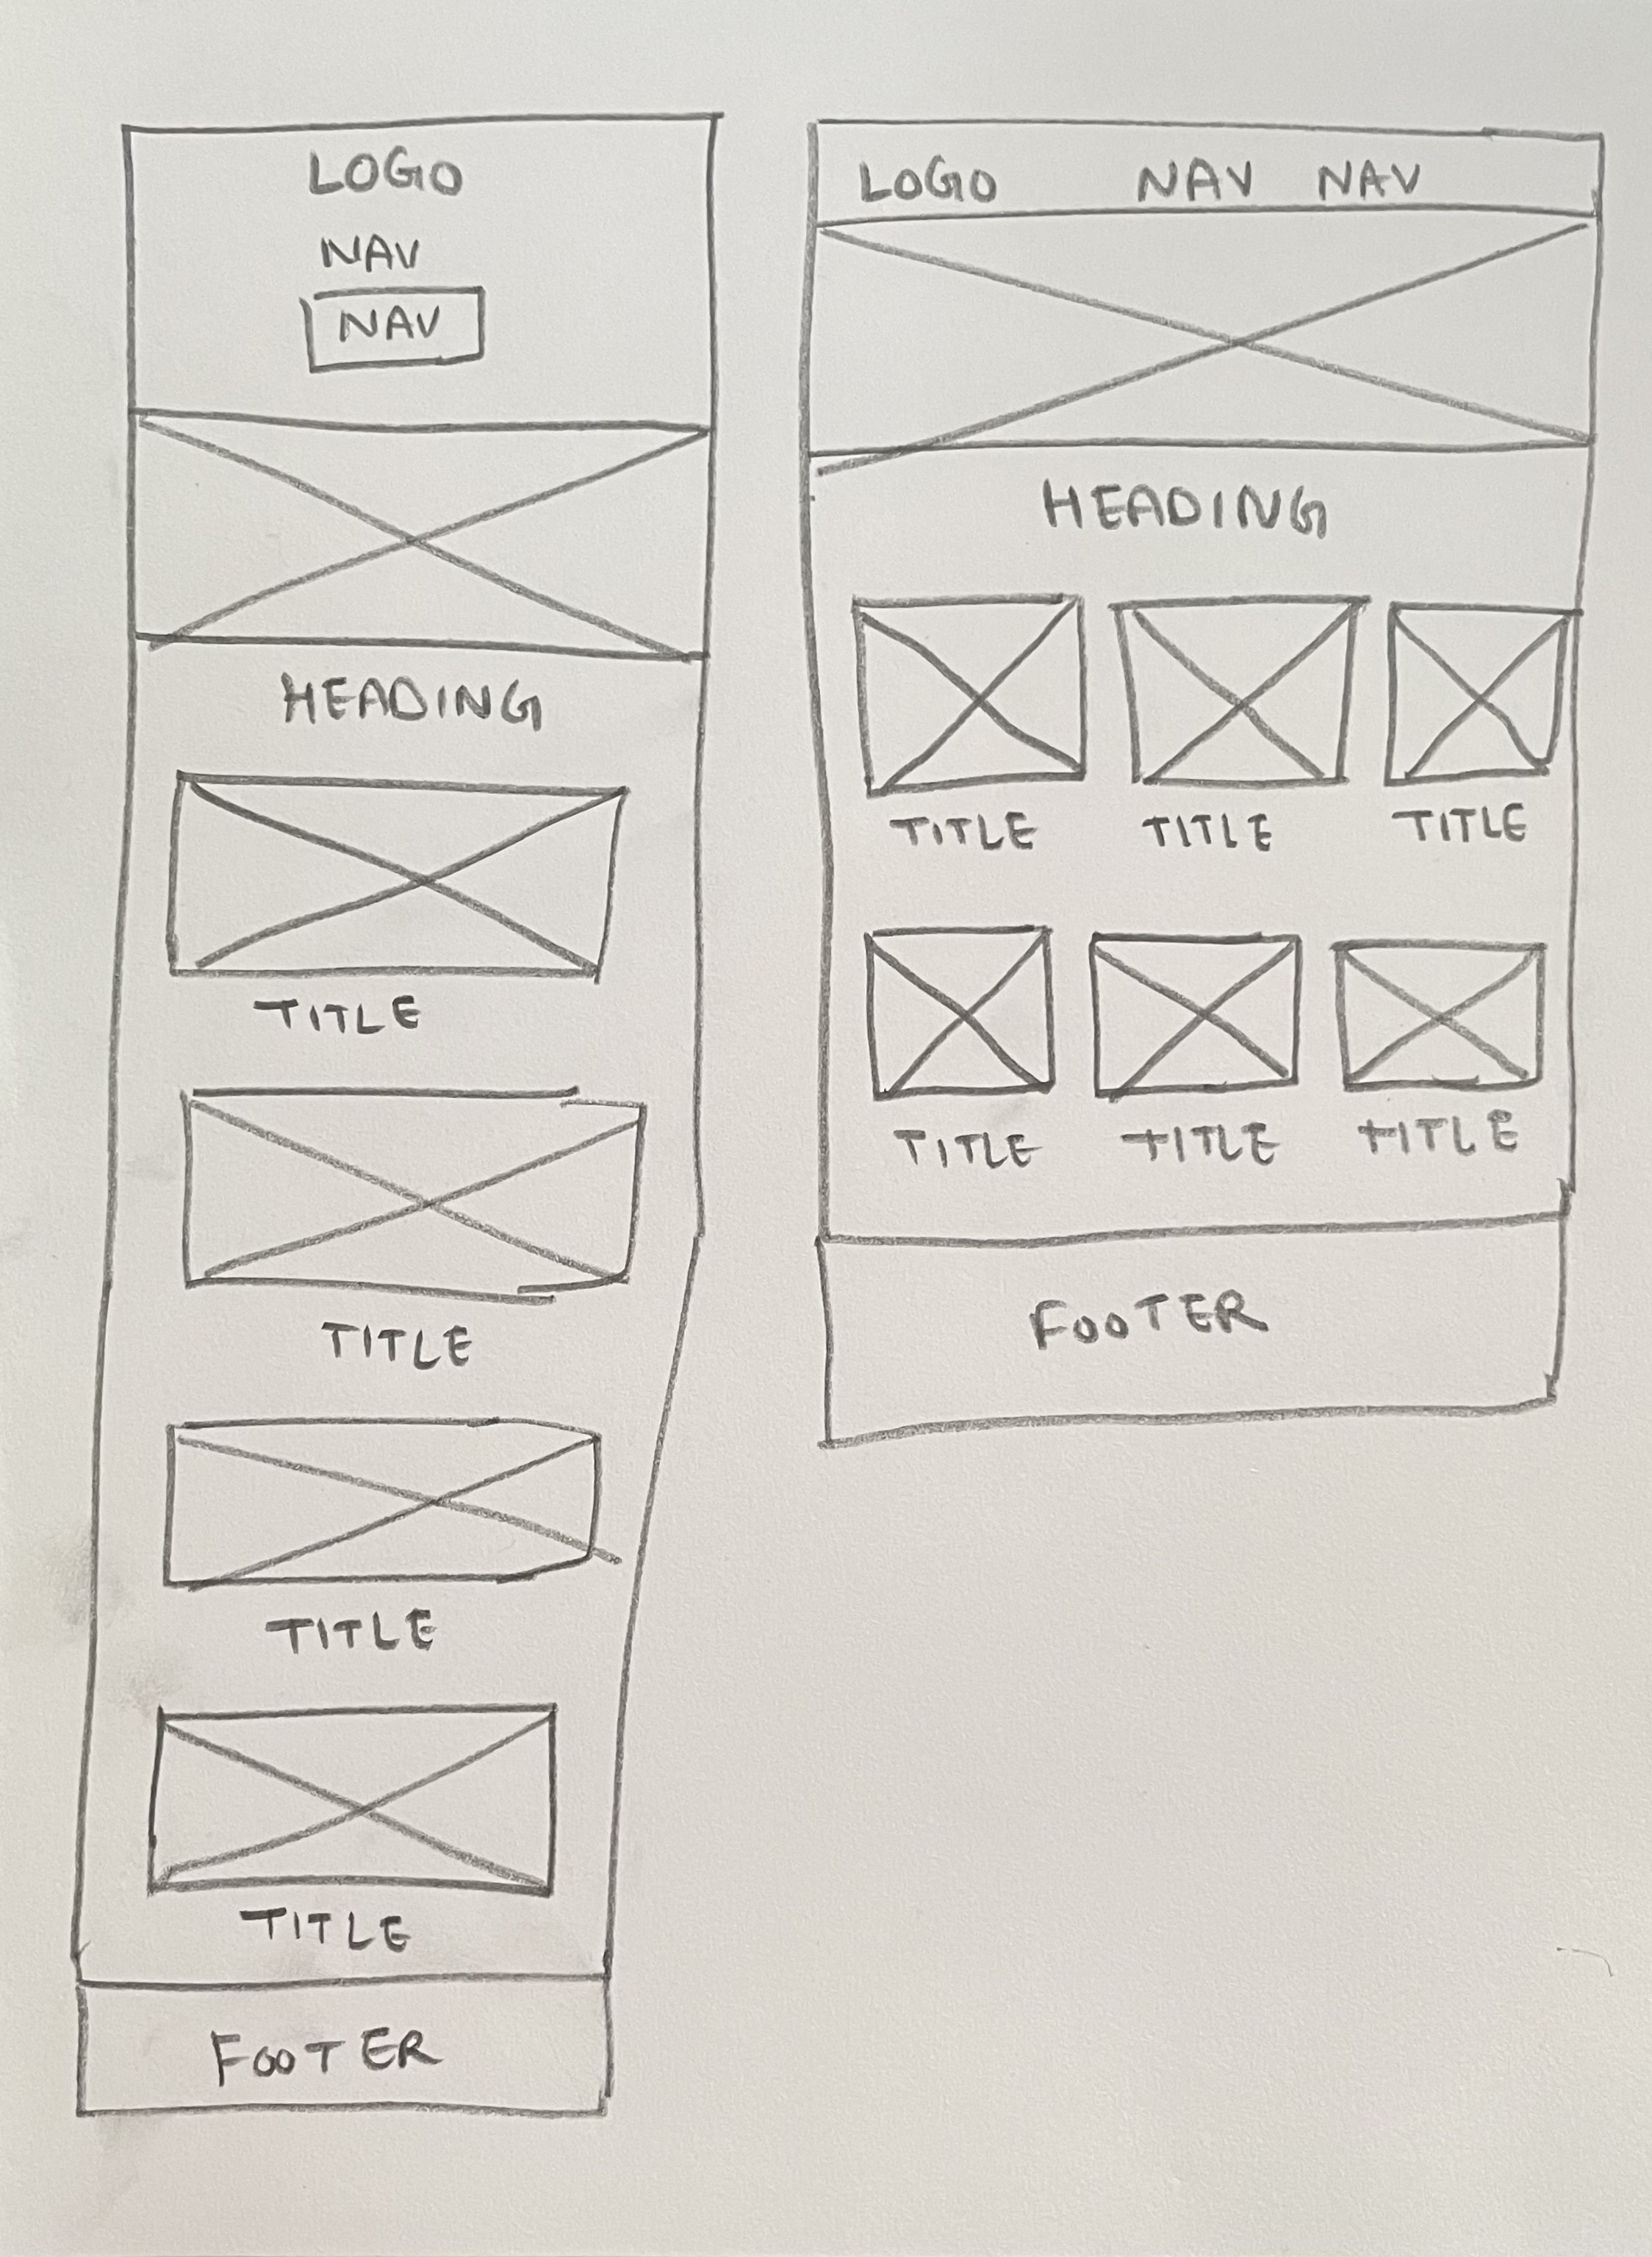 LOGO
NAV
NAV
HEADING
TITLE
TITLE
TITLE
TITLE
FOOTER
LOGO NAV NAV
HEADING
TITLE TITLE TITLE
TITLE TITLE TITLE
FOOTER